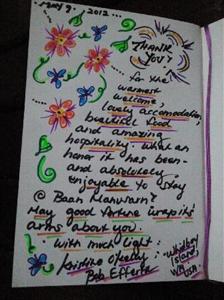 MAY 9. 2012...
THANK
YOU!
for the
warmest
welcome,
lovely accomodation,
beautiful food
and amazing
hospitality. What an
honor it has been-
and absolutely
enjoyable to stay
@ Baan Manusarn!
May good fortune wrap its
arms about you.
With much light:
Kristine
Bob Effertz
Whidbey
Island,
WA
USA